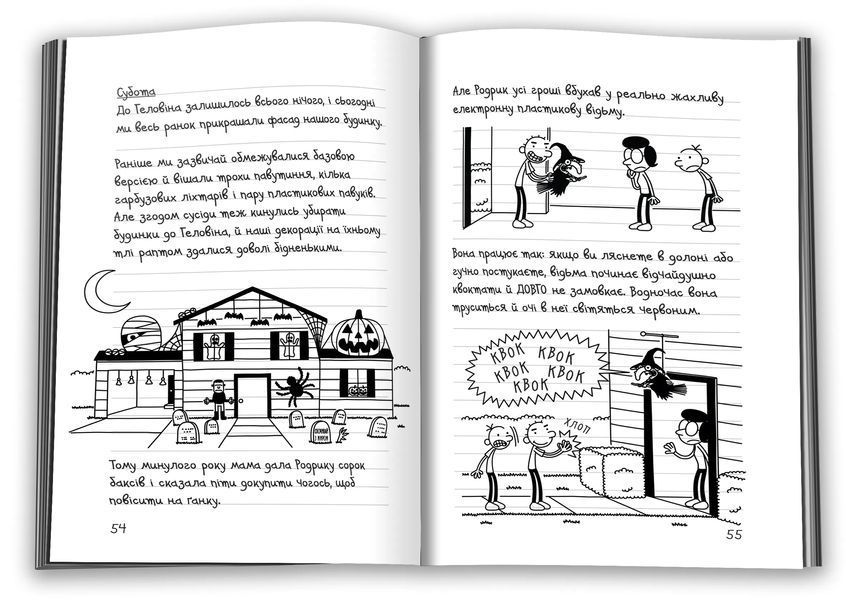 Субота
До Геловіна залишилось всього нічого, і сьогодні
ми весь ранок прикрашали фасад нашого будинку.
Раніше ми зазвичай обмежувалися базовою
версією й вішали трохи павутиння, кілька
гарбузових ліхтарів і пару пластикових павуків.
Але згодом сусіди теж кинулись убирати
будинки до Геловіна, й наші декорації на їхньому
тлі раптом здалися доволі бідненькими.
Тому минулого року мама дала Родрику сорок
баксів і сказала піти докупити чогось, щоб
повісити на ґанку.
54
Але Родрик усі гроші вбухав у реально жахливу
електронну пластикову відьму.
Вона працює так: якщо ви ляснете в долоні або
гучно постукаєте, відьма починає відчайдушно
квоктати й ДОВГО не замовкає. Водночас вона
труситься й очі в неї світяться червоним.
КВОК КВОК
КВОК КВОК
КВОК
ХЛОП
55